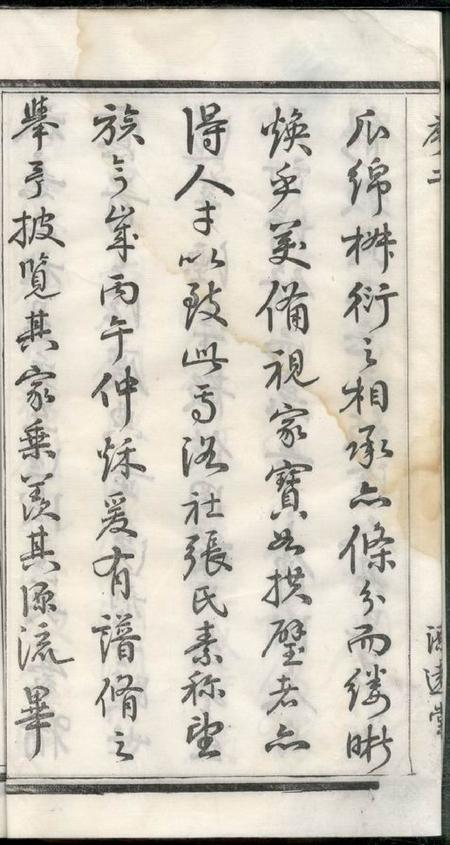 序二
源遠堂
瓜綿椒衍之相承亦條分而縷晰
煥乎美備視家寶如拱璧者亦
得人才以致此焉洛社張氏素称望
族今歲丙午仲秌爰有譜脩之
舉予披覽其家乗羨其源流畢